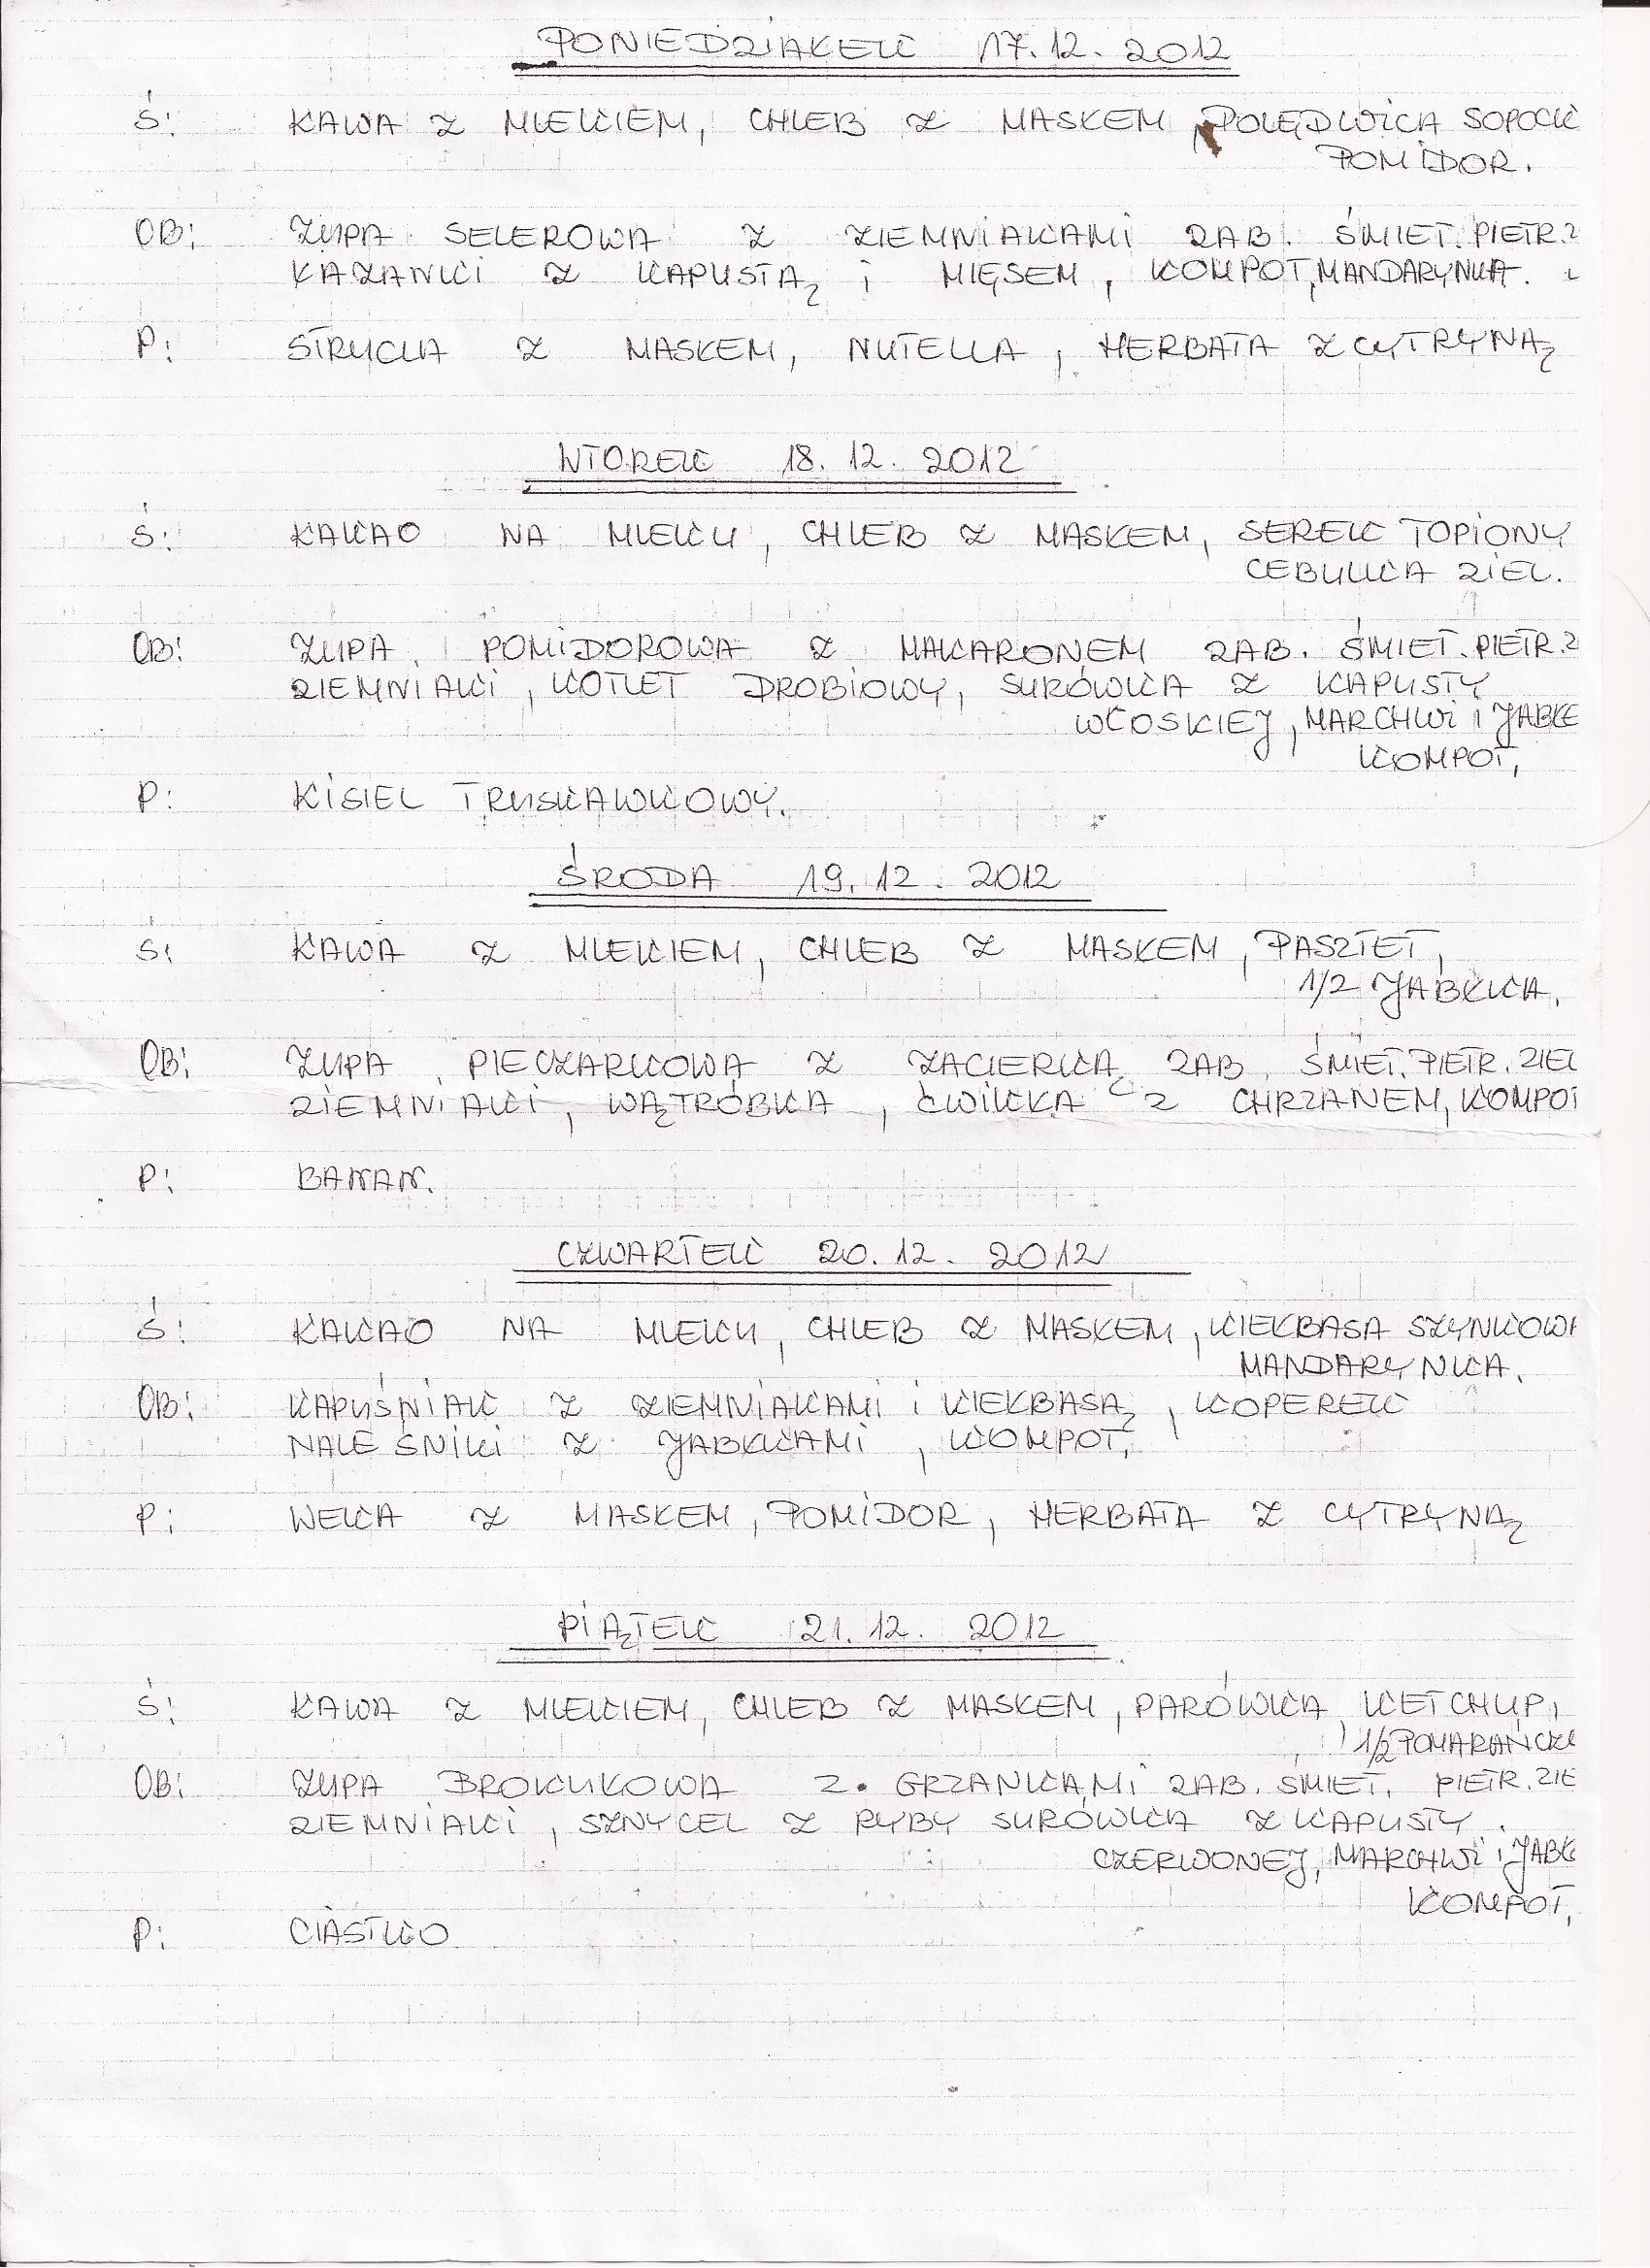 PONIEDZIAŁEK 17.12.2012
Ś: KAWA Z MLEKIEM, CHLEB Z MASŁEM, POLĘDWICA SOPOCK
POMIDOR.
OB: ZUPA SELEROWA Z ZIEMNIAKAMI ZAB. ŚMIET. PIETR. Z
ŁAZANKI Z KAPUSTĄ i MIĘSEM, KOMPOT, MANDARYNKA.
P: STRUCLA Z MASŁEM, NUTELLA, HERBATA Z CYTRYNĄ
WTOREK 18.12.2012
Ś: KAKAO NA MLEKU, CHLEB Z MASŁEM, SEREK TOPIONY
CEBULKA ZIEL.
OB: ZUPA POMIDOROWA Z MAKARONEM ZAB. ŚMIET. PIETR. Z
ZIEMNIAKI, KOTLET DROBIOWY, SURÓWKA Z KAPUSTY
WŁOSKIEJ, MARCHWI I JABŁE
KOMPOT,
P: KISIEL TRUSKAWKOWY.
ŚRODA 19.12.2012
Ś: KAWA Z MLEKIEM, CHLEB Z MASŁEM, PASZTET,
1/2 JABŁKA.
OB: ZUPA PIECZARKOWA Z ZACIERKĄ ZAB. ŚMIET. PIETR. ZIEL
ZIEMNIAKI, WĄTRÓBKA, ĆWIKŁA Z CHRZANEM, KOMPOT
P: BANAN.
CZWARTEK 20.12.2012
Ś: KAKAO NA MLEKU, CHLEB Z MASŁEM, KIEŁBASA SZYNKOWA
MANDARYNKA.
OB: KAPUŚNIAK Z ZIEMNIAKAMI i KIEŁBASĄ, KOPEREK
NALEŚNIKI Z JABŁKAMI, KOMPOT,
P: WEKA Z MASŁEM, POMIDOR, HERBATA Z CYTRYNĄ
PIĄTEK 21.12.2012
Ś: KAWA Z MLEKIEM, CHLEB Z MASŁEM, PARÓWKA KETCHUP,
1/2 POMARAŃCZ
OB: ZUPA BROKUŁOWA Z GRZANKAMI ZAB. ŚMIET. PIETR. ZIE
ZIEMNIAKI, SZNYCEL Z RYBY SURÓWKA Z KAPUSTY
CZERWONEJ, MARCHWI I JABŁ
KOMPOT,
P: CIASTKO